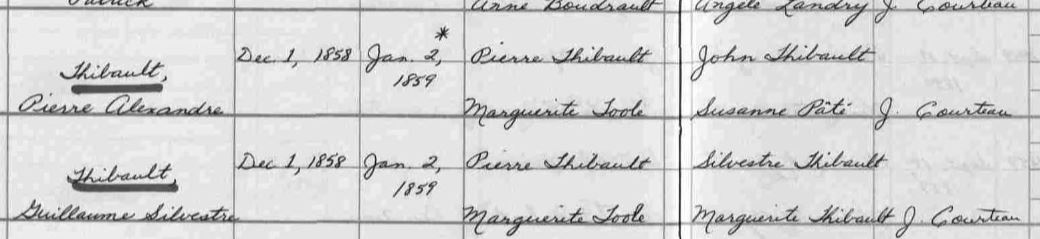 Patrick Anne Boudrault Angele Landry J. Courteau
*
Thibault, Dec. 1, 1858 Jan. 2, Pierre Thibault John Thibault
1859
Pierre Alexandre Marguerite Toole Susanne Pâté J. Courteau
Thibault, Dec 1, 1858 Jan. 2, Pierre Thibault Silvestre Thibault
1859
Guillaume Silvestre Marguerite Toole Marguerite Thibault J. Courteau